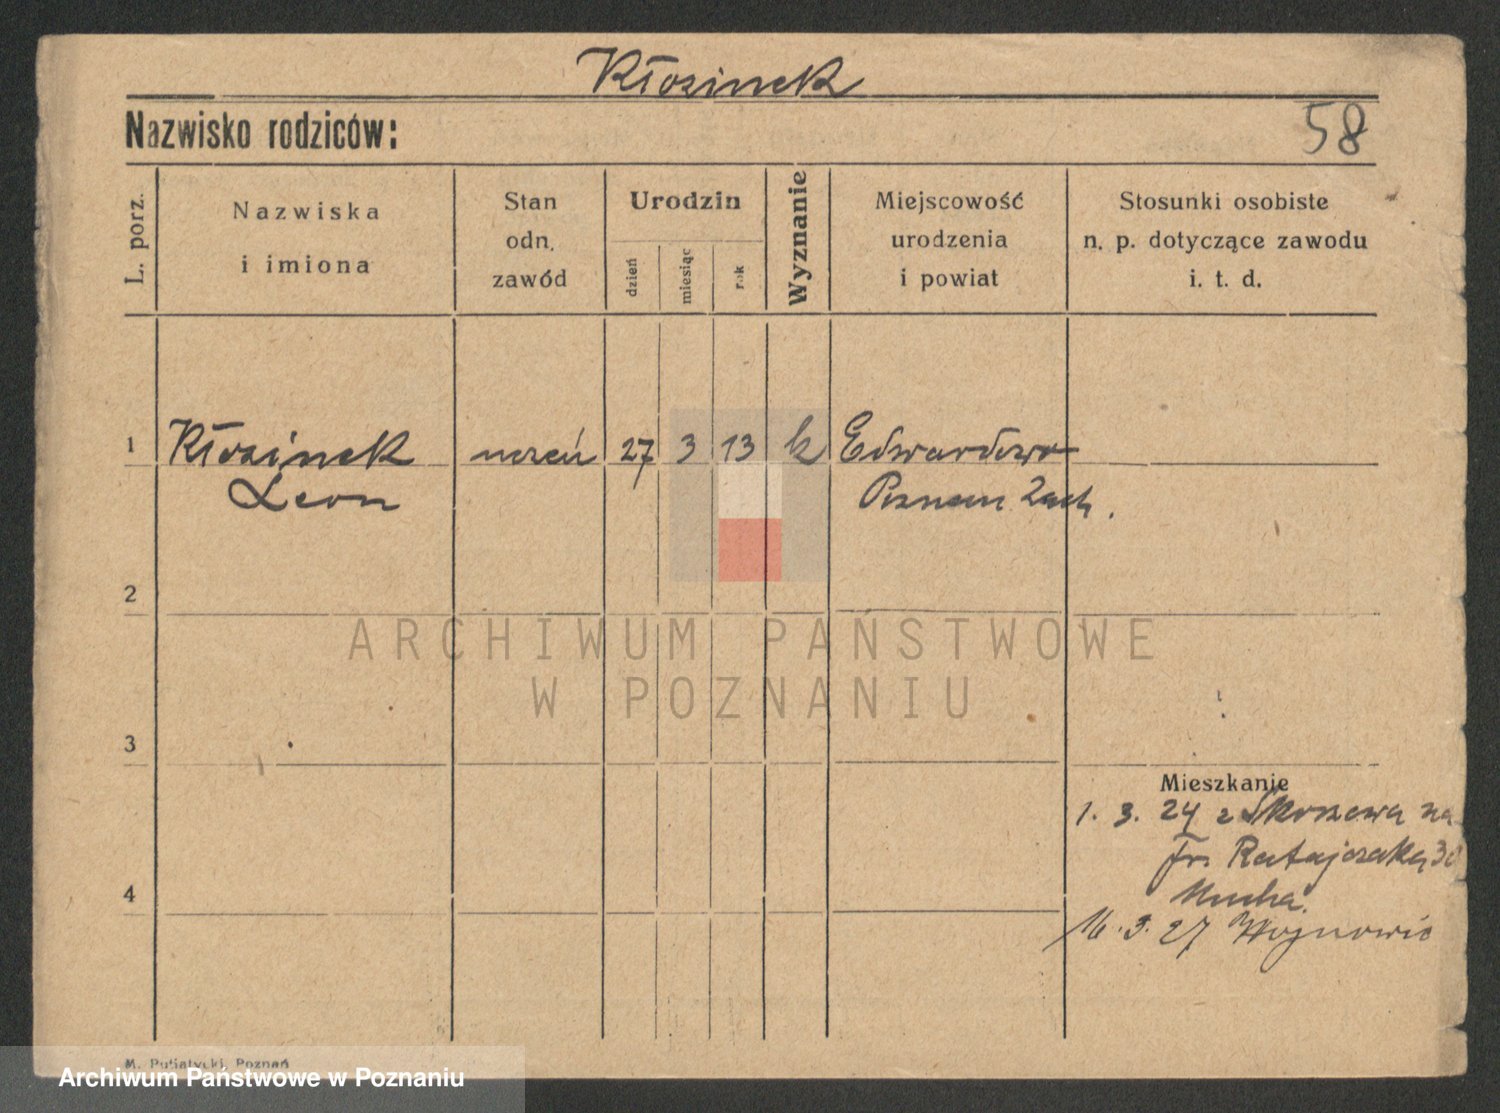 Kłosinek
Nazwisko rodziców:
58
L. porz.
Nazwiska
i imiona
Stan
odn.
zawód
Urodzin
dzień
miesiąc
rok
Wyznanie
Miejscowość
urodzenia
i powiat
Stosunki osobiste
n. p. dotyczące zawodu
i. t. d.
1 Kłosinek uczeń 27 3 13 k Edwardowo
Leon Poznań Zach.
2
ARCHIWUM PAŃSTWOWE
W POZNANIU
3
Mieszkanie
1. 3. 24 z Skorzewa na
fr. Ratajczaka 30
Mucha.
4
16. 3. 27 Wojnowic
M. Putiatycki, Poznań
Archiwum Państwowe w Poznaniu